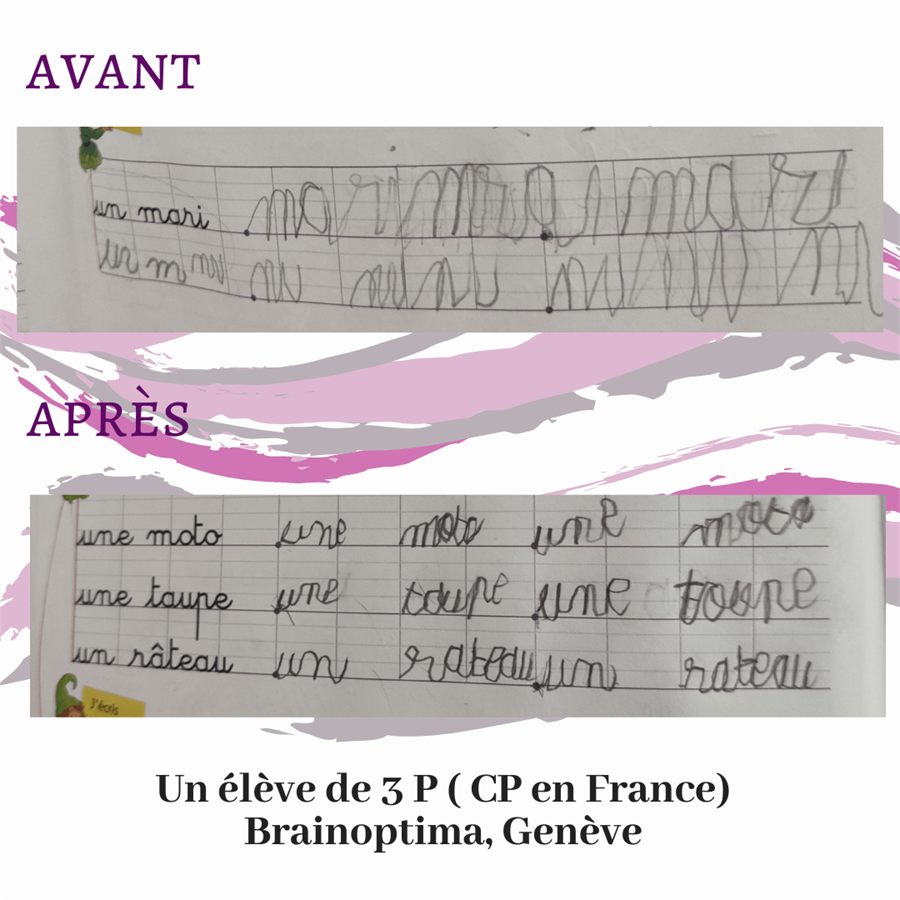 AVANT
un mari mari mra i mari
un m
APRÈS
une moto une moto une moto
une taupe une toupe une toupe
un râteau un rateau un rateau
J'écris
Un élève de 3 P ( CP en France)
Brainoptima, Genève